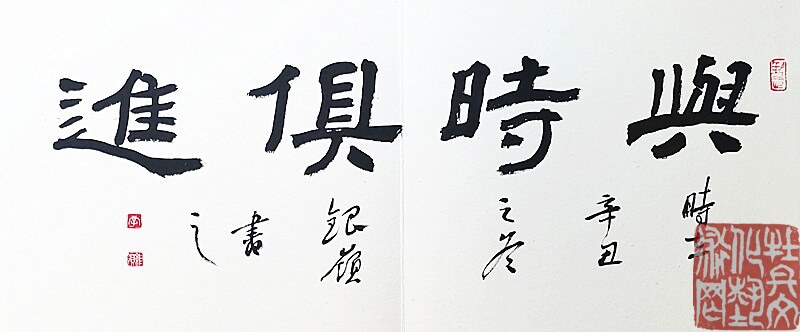 與時俱進
時在
辛丑
之冬
銀嶺
書
之